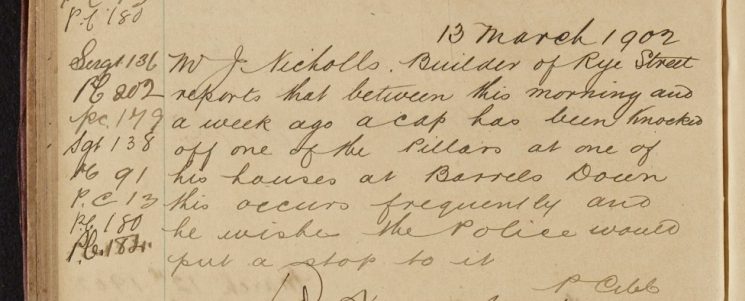 P.C 180
13 March 1902
Sergt 136 Mr J. Nicholls. Builder of Rye Street
PC 202 reports that between this morning and
pc. 179 a week ago a cap has been Knocked
Sgt 138 off one of the Pillars at one of
PC 91 his houses at Barrels Down
P.C 13 this occurs frequently and
PC 180 he wishes the Police would
P.C. 184. put a stop to it